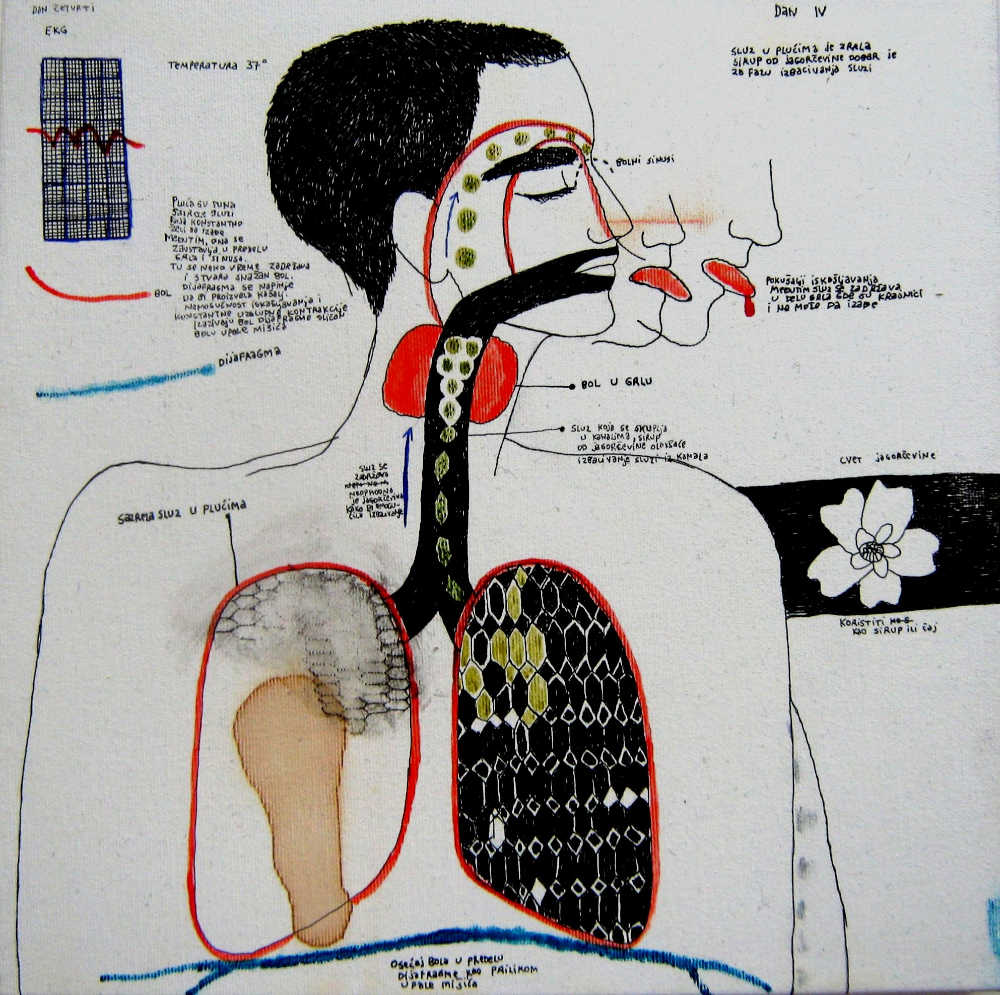 DAN ČETVRTI
EKG
TEMPERATURA 37°
DAN IV
SLUZ U PLUĆIMA JE ZRELA
SIRUP OD JAGORČEVINE DOBAR JE
ZA FAZU IZBACIVANJA SLUZI
BOLNI SINUSI
PLUĆA SU PUNA
SLUZI
KOJA KONSTANTNO
ŽELI DA IZAĐE
MEĐUTIM, ONA SE
ZAUSTAVLJA U PREDELU
GRLA I SINUSA.
TU SE NEKO VREME ZADRŽAVA
I STVARA SNAŽAN BOL.
DIJAFRAGMA SE NAPINJE
DA BI PROIZVELA KAŠALJ.
NEMOGUĆNOST ISKAŠLJAVANJA I
KONSTANTNE UZALUDNE KONTRAKCIJE
IZAZIVAJU BOL DIJAFRAGME SLIČAN
BOLU UPALE MIŠIĆA
BOL
DIJAFRAGMA
POKUŠAJI ISKAŠLJAVANJA
MEĐUTIM SLUZ SE ZADRŽAVA
U DELU GRLA GDE SU KRAJNICI
I NE MOŽE DA IZAĐE
BOL U GRLU
SLUZ KOJA SE SKUPLJA
U KANALIMA, SIRUP
OD JAGORČEVINE OLAKŠAĆE
IZBACIVANJE SLUZI IZ KANALA
SLUZ SE
ZADRŽAVA
NEOPHODNA
JE JAGORČEVINA
KAKO BI OMOGU-
ĆILA IZBACIVANJE
SAZRELA SLUZ U PLUĆIMA
CVET JAGORČEVINE
KORISTITI
KAO SIRUP ILI ČAJ
OSEĆAJ BOLA U PREDELU
DIJAFRAGME KAO PRILIKOM
UPALE MIŠIĆA